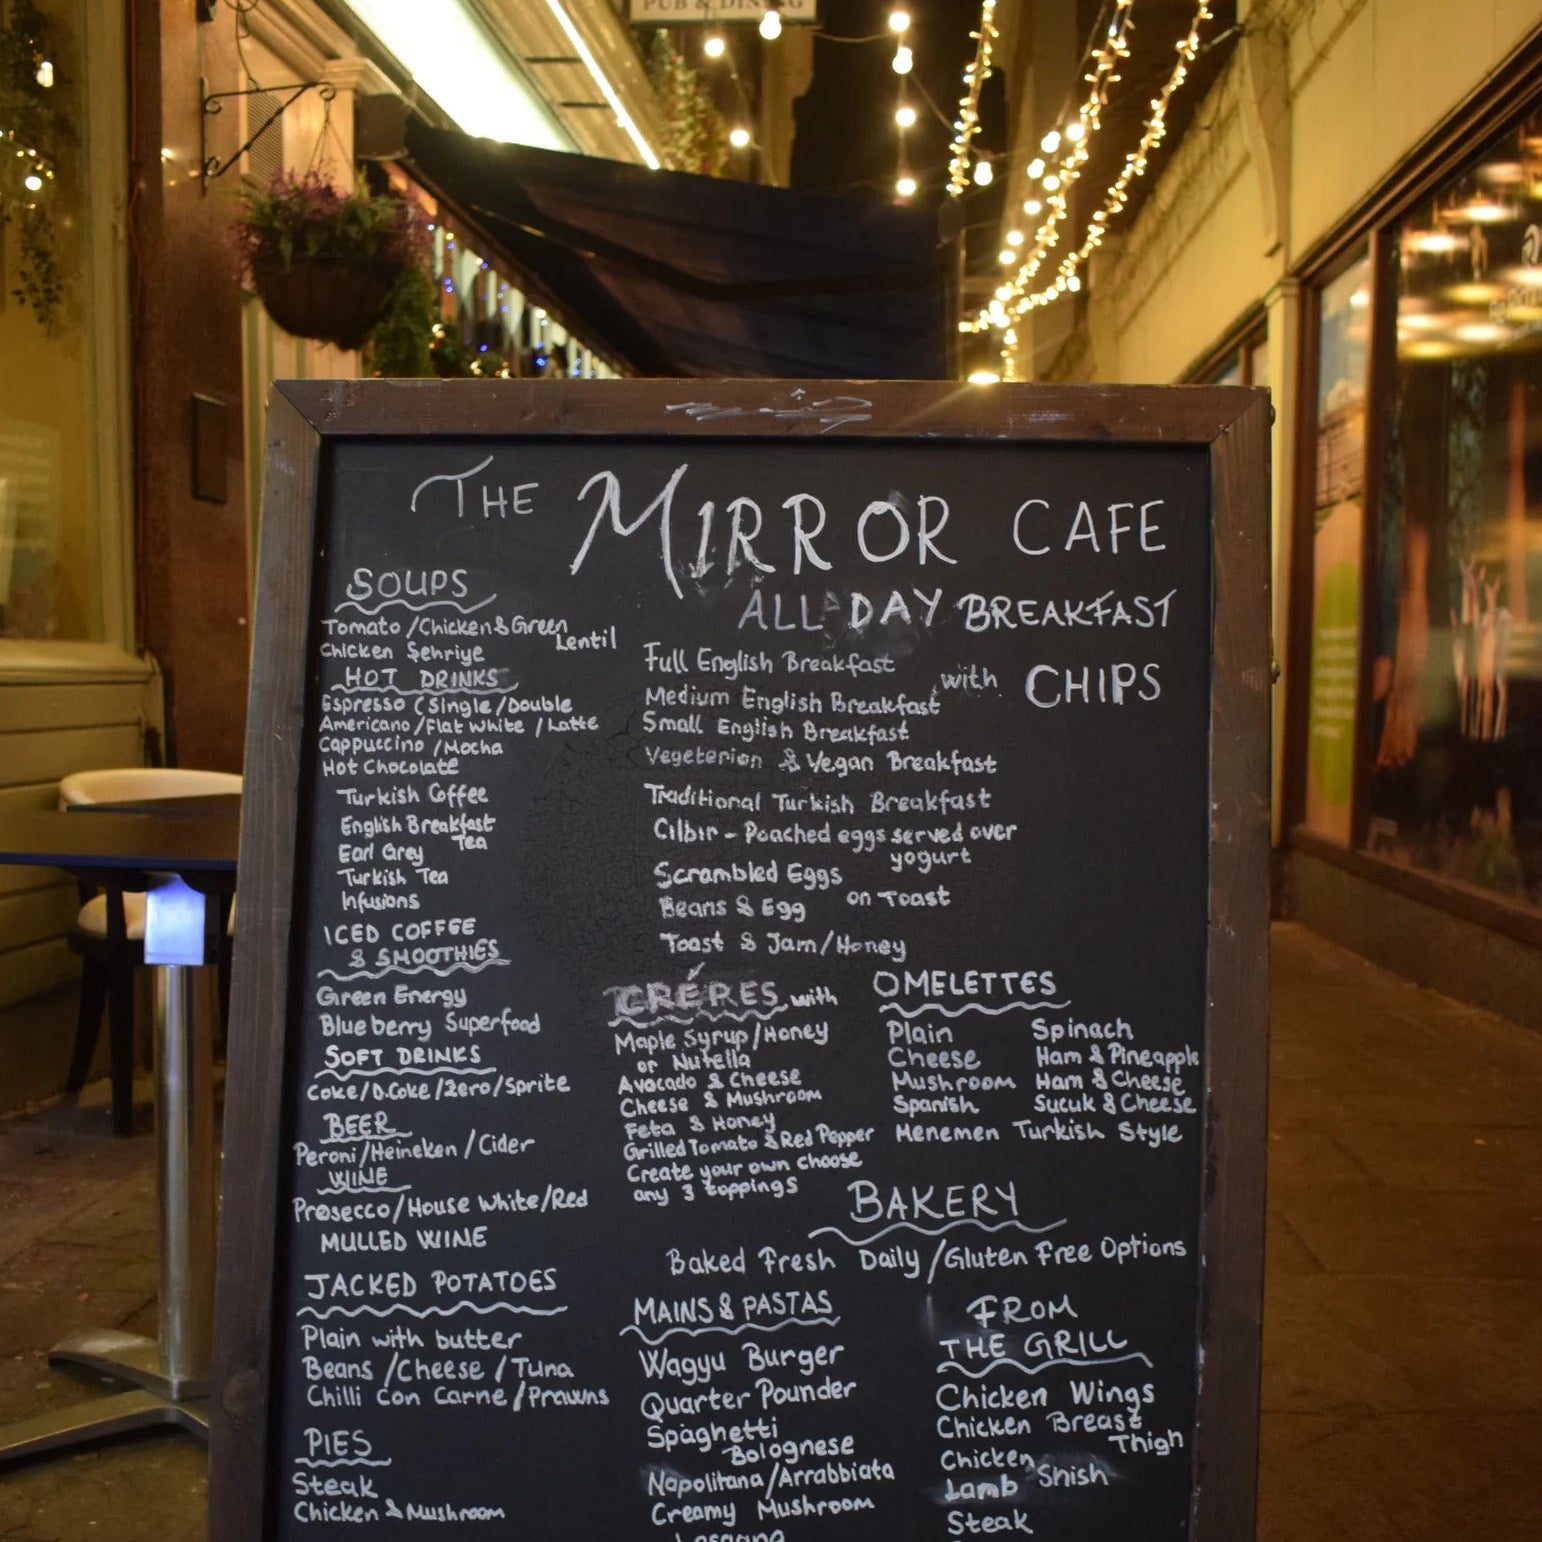 PUB & DINING
THE MIRROR CAFE
SOUPS
Tomato/Chicken & Green
Lentil
Chicken Şehriye
HOT DRINKS
Espresso (Single/Double
Americano/Flat White/Latte
Cappuccino/Mocha
Hot Chocolate
Turkish Coffee
English Breakfast
Tea
Earl Grey
Turkish Tea
Infusions
ICED COFFEE
& SMOOTHIES
Green Energy
Blueberry Superfood
SOFT DRINKS
Coke/D.Coke/Zero/Sprite
BEER
Peroni/Heineken/Cider
WINE
Prosecco/House White/Red
MULLED WINE
JACKED POTATOES
Plain with butter
Beans/Cheese/Tuna
Chilli Con Carne/Prawns
PIES
Steak
Chicken & Mushroom
ALL DAY BREAKFAST
Full English Breakfast
Medium English Breakfast
Small English Breakfast
with CHIPS
Vegeterian & Vegan Breakfast
Traditional Turkish Breakfast
Cilbir - Poached eggs served over
yogurt
Scrambled Eggs
Beans & Egg
on Toast
Toast & Jam/Honey
CRÉPES with
Maple Syrup/Honey
or Nutella
Avocado & Cheese
Cheese & Mushroom
Feta & Honey
Grilled Tomato & Red Pepper
Create your own choose
any 3 toppings
OMELETTES
Plain
Cheese
Mushroom
Spanish
Spinach
Ham & Pineapple
Ham & Cheese
Sucuk & Cheese
Menemen Turkish Style
BAKERY
Baked Fresh Daily/Gluten Free Options
MAINS & PASTAS
Wagyu Burger
Quarter Pounder
Spaghetti
Bolognese
Napolitana/Arrabbiata
Creamy Mushroom
FROM
THE GRILL
Chicken Wings
Chicken Breast
Thigh
Chicken
Lamb Shish
Steak